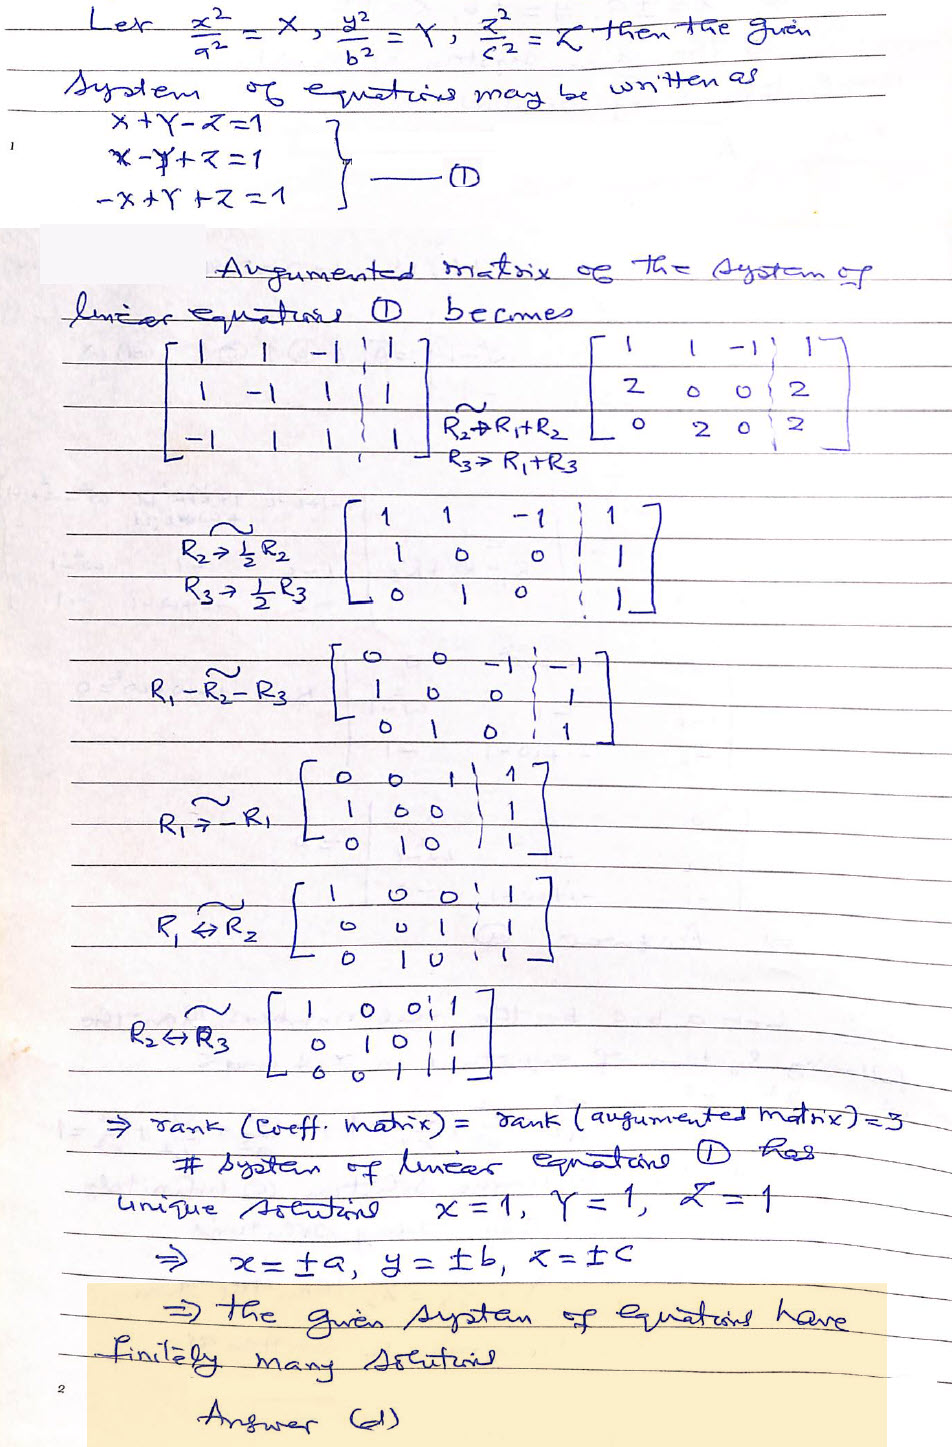 Let x²/a² = X, y²/b² = Y, z²/c² = Z then the given
system of equations may be written as
X+Y-Z=1
1
X-Y+Z=1
-X+Y+Z=1
} —— ①
Augumented matrix of the system of
linear equations ① becomes
[ 1 1 -1 ¦ 1 ] [ 1 1 -1 ¦ 1 ]
[ 1 -1 1 ¦ 1 ] ~ [ 2 0 0 ¦ 2 ]
[ -1 1 1 ¦ 1 ] R₂→R₁+R₂ [ 0 2 0 ¦ 2 ]
R₃→R₁+R₃
~ [ 1 1 -1 ¦ 1 ]
R₂→½R₂ [ 1 0 0 ¦ 1 ]
R₃→½R₃ [ 0 1 0 ¦ 1 ]
~ [ 0 0 -1 ¦ -1 ]
R₁-R₂-R₃ [ 1 0 0 ¦ 1 ]
[ 0 1 0 ¦ 1 ]
~ [ 0 0 1 ¦ 1 ]
R₁→-R₁ [ 1 0 0 ¦ 1 ]
[ 0 1 0 ¦ 1 ]
~ [ 1 0 0 ¦ 1 ]
R₁↔R₂ [ 0 0 1 ¦ 1 ]
[ 0 1 0 ¦ 1 ]
~ [ 1 0 0 ¦ 1 ]
R₂↔R₃ [ 0 1 0 ¦ 1 ]
[ 0 0 1 ¦ 1 ]
⇒ rank (Coeff. matrix) = rank (augumented matrix)=3
# system of linear equations ① has
unique solutions X=1, Y=1, Z=1
⇒ x=±a, y=±b, z=±c
⇒ the given system of equations have
finitely many solutions
2
Answer (d)